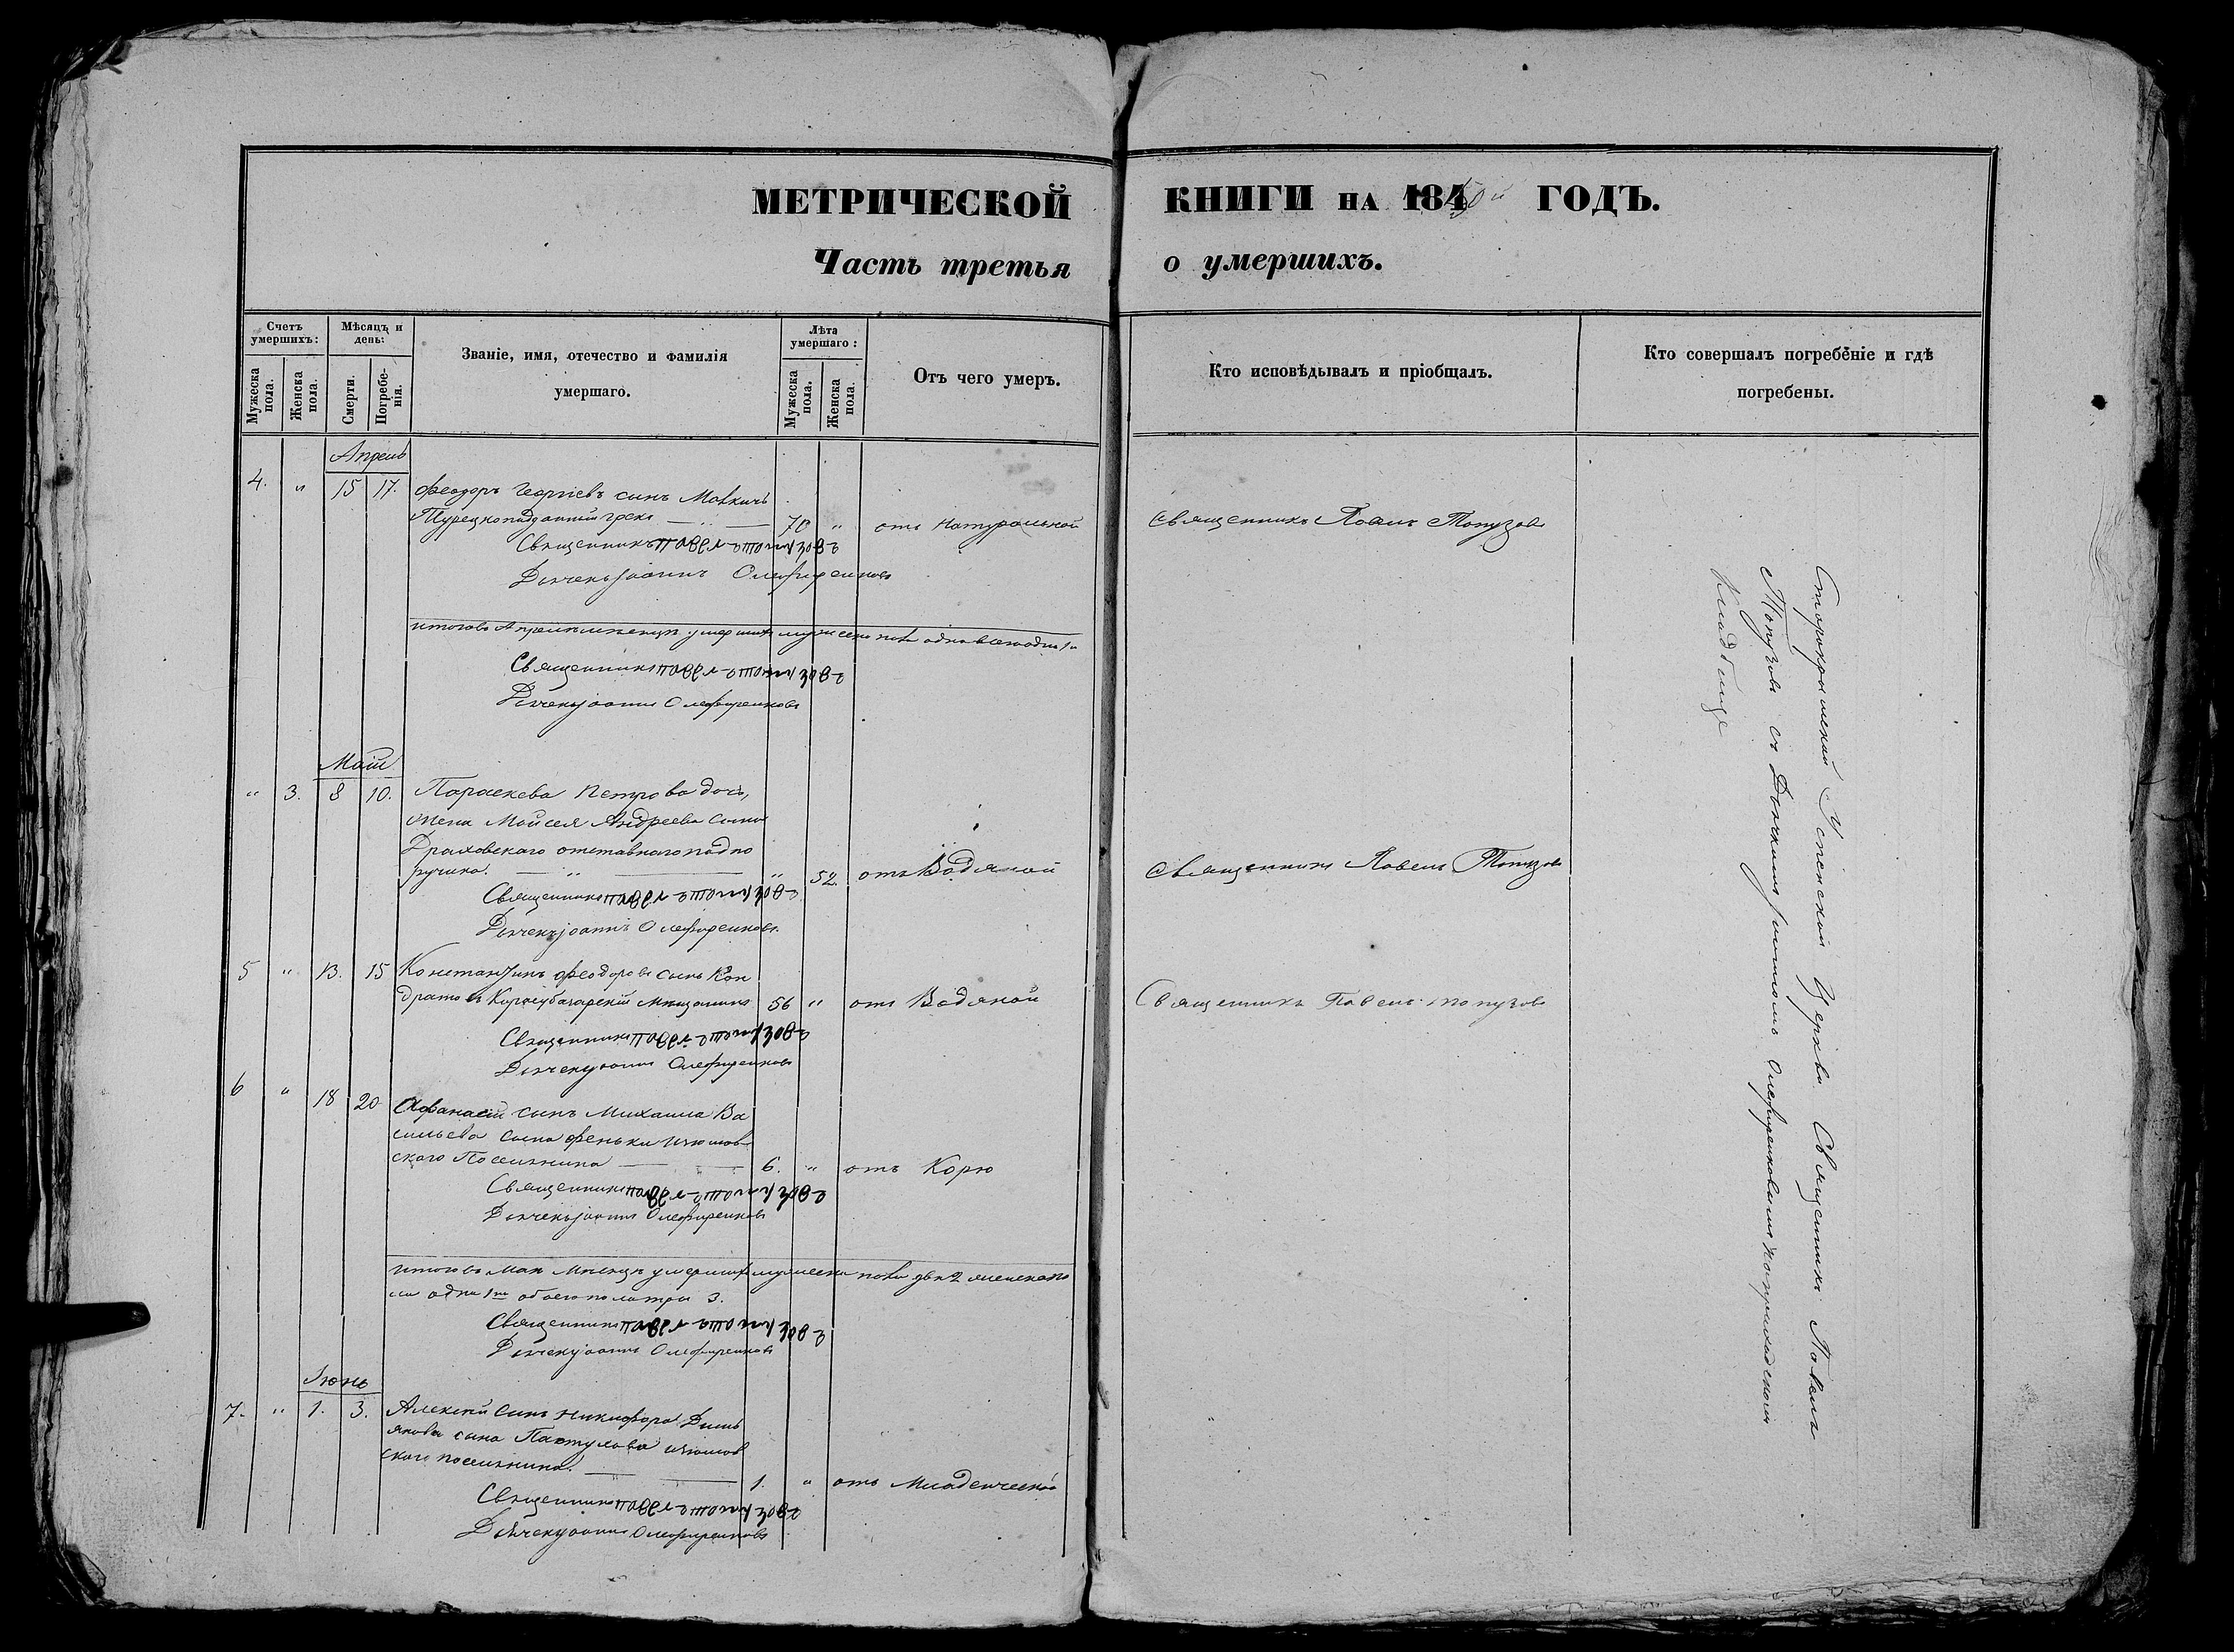 МЕТРИЧЕСКОЙ КНИГИ НА 1850й ГОДЪ.
Часть третья о умершихъ.
Счетъ умершихъ:
Мужеска пола.
Женска пола.
Мѣсяцъ и день:
Смерти.
Погребенія.
Званіе, имя, отечество и фамилія
умершаго.
Лѣта умершаго:
Мужеска пола.
Женска пола.
Отъ чего умеръ.
Кто исповѣдывалъ и пріобщалъ.
Кто совершалъ погребеніе и гдѣ
погребены.
Апрель
4. " 15 17. Феодоръ Георгіевъ сынъ
Турецкоподданный грекъ 70 " отъ Натуральной Священникъ Павелъ Топузовъ
Священникъ Павелъ Топузовъ
Дьячекъ Іоаннъ Олефиренковъ
итого въ Апреле месяце умершихъ мужеска пола одна
Священникъ Павелъ Топузовъ
Дьячекъ Іоаннъ Олефиренковъ
Май
" 3. 8 10. Параскева Петрова дочь,
жена Мойсея Андреева сына
Драховскаго отставнаго подпо
ручика. " 52. отъ Водяной Священникъ Павелъ Топузовъ
Священникъ Павелъ Топузовъ
Дьячекъ Іоаннъ Олефиренковъ
5 " 13. 15 Константинъ Феодоровъ сынъ Кон
дратовъ Карасубазарскій мещанинъ 56 " отъ Водяной Священникъ Павелъ Топузовъ
Священникъ Павелъ Топузовъ
Дьячекъ Іоаннъ Олефиренковъ
6 " 18 20 Афанасій сынъ Михаила Ва
сильева сына Феньки изюмов
ского Поселянина 6. " отъ Корю
Священникъ Павелъ Топузовъ
Дьячекъ Іоаннъ Олефиренковъ
итого въ Мае месяце умершихъ мужеска пола две 2 женска по
ла одна 1на обоего пола три 3.
Священникъ Павелъ Топузовъ
Дьячекъ Іоаннъ Олефиренковъ
Іюнь
7. " 1. 3. Алексей сынъ Никифора Демь
янова сына изюмов
ского поселянина. 1. " отъ Младенческой
Священникъ Павелъ Топузовъ
Дьячекъ Іоаннъ Олефиренковъ
Старокрымской Успенской Церкви Священникъ Павелъ
Топузовъ съ Дьячкомъ Іоанномъ Олефиренковымъ на приходскомъ
Кладбище